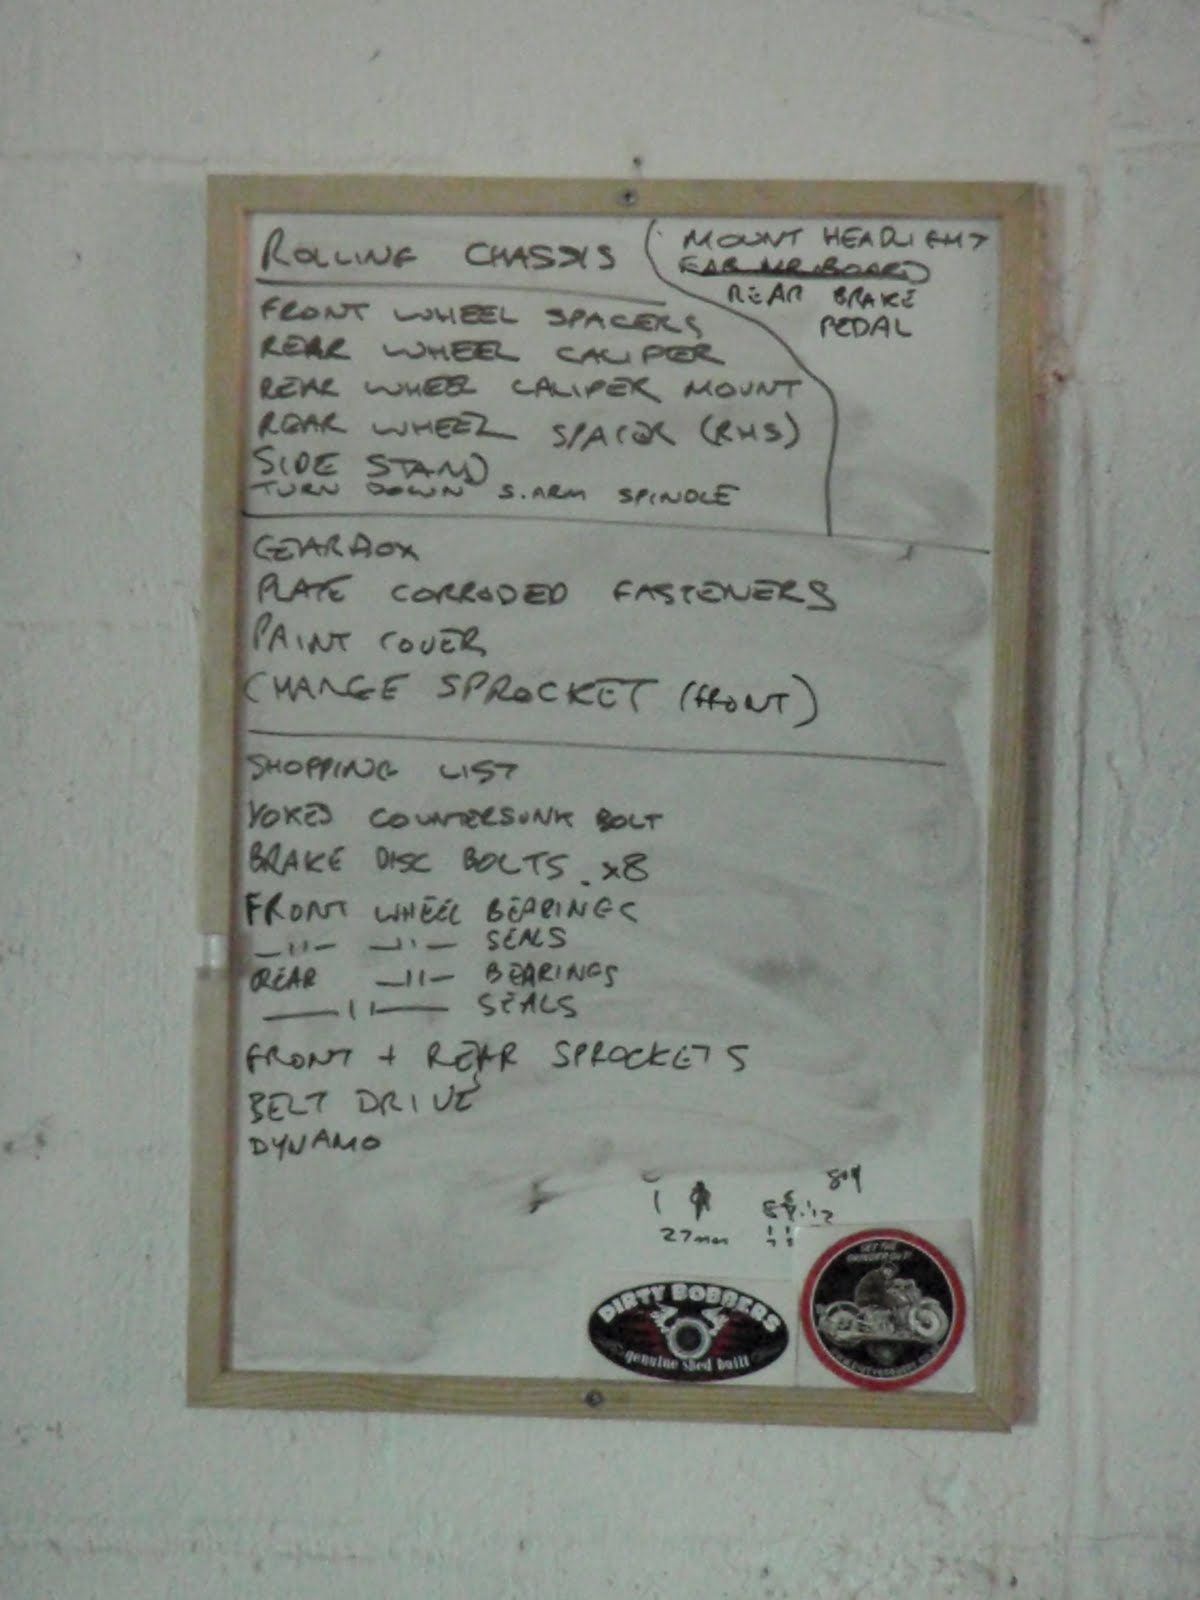 ROLLING CHASSIS
FRONT WHEEL SPACERS
REAR WHEEL CALIPER
REAR WHEEL CALIPER MOUNT
REAR WHEEL SPACER (RHS)
SIDE STAND
TURN DOWN S.ARM SPINDLE
MOUNT HEADLIGHT
REAR BRAKE
PEDAL
GEARBOX
PLATE CORRODED FASTENERS
PAINT COVER
CHANGE SPROCKET (FRONT)
SHOPPING LIST
YOKES COUNTERSUNK BOLT
BRAKE DISC BOLTS. x8
FRONT WHEEL BEARINGS
—11— —11— SEALS
REAR —11— BEARINGS
—11— SEALS
FRONT + REAR SPROCKETS
BELT DRIVE
DYNAMO
27mm
DIRTY BOBBERS
genuine shed built
GET THE
GRINDER OUT!